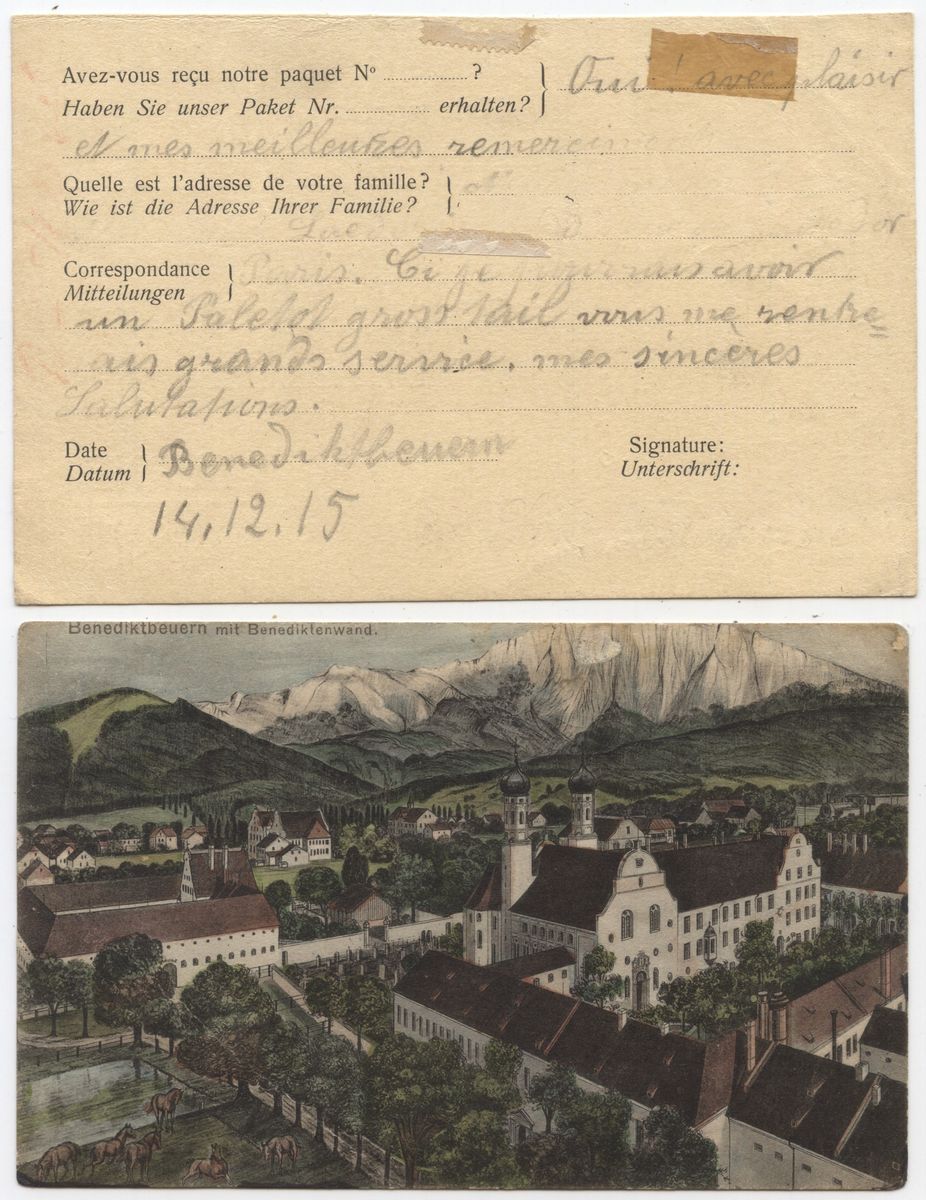 Avez-vous reçu notre paquet Nº ............ ? Oui ! avec plaisir
Haben Sie unser Paket Nr. ............ erhalten?
et mes meilleures
Quelle est l'adresse de votre famille?
Wie ist die Adresse Ihrer Familie?
Correspondance Paris. avoir
Mitteilungen
un Paletot gros tail vous me rentre=
ais grands service. mes sincères
Salutations.
Date Benediktbeuern Signature:
Datum Unterschrift:
14.12.15
Benediktbeuern mit Benediktenwand.